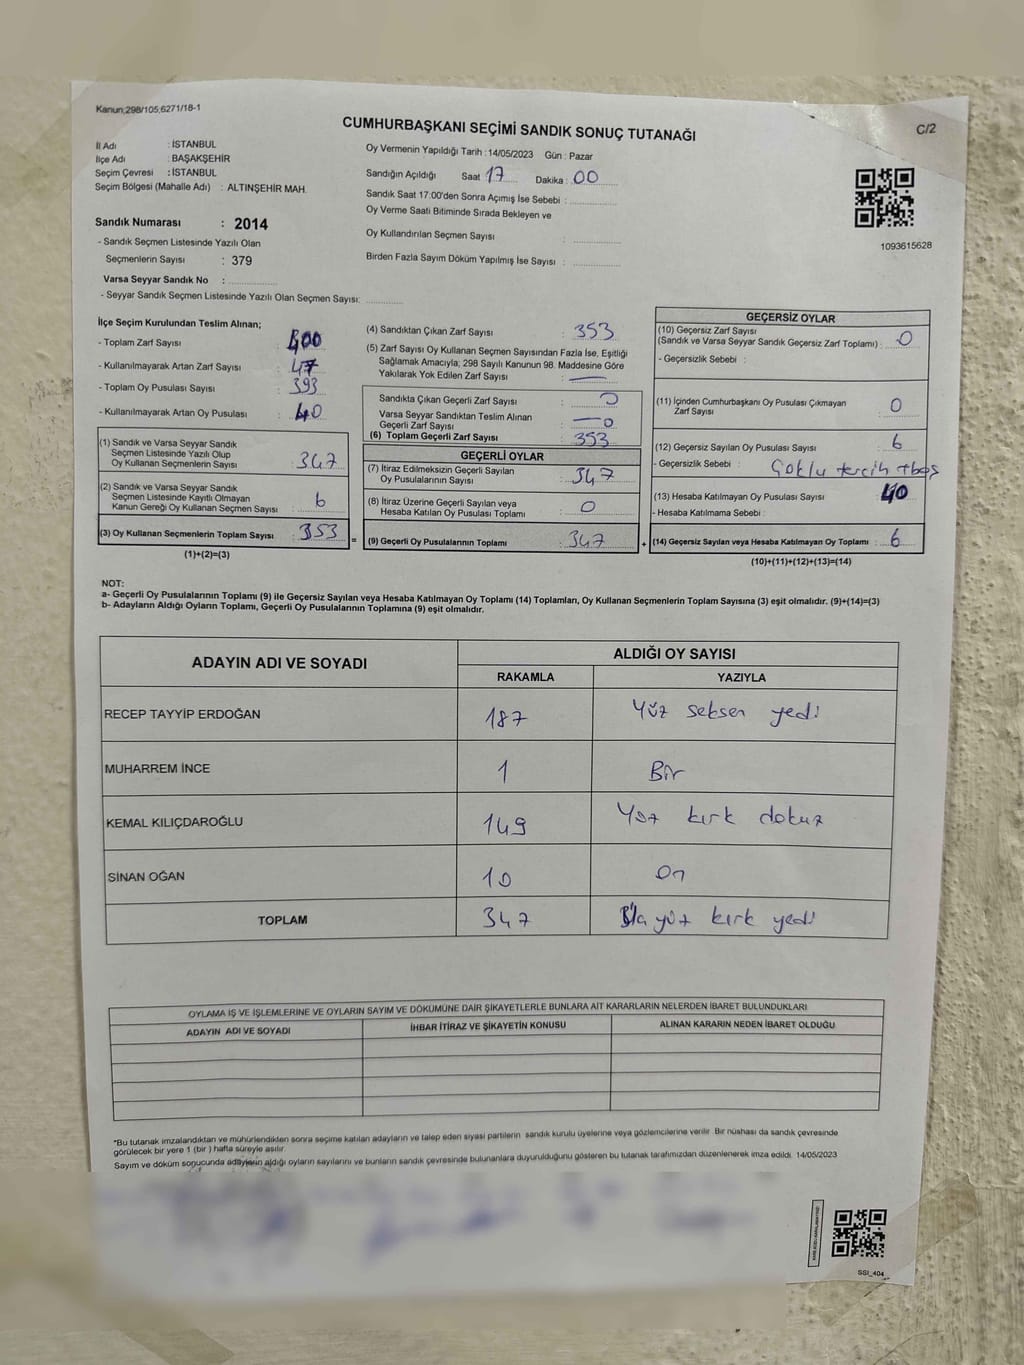 Kanun;298/105,6271/18-1
C/2
CUMHURBAŞKANI SEÇİMİ SANDIK SONUÇ TUTANAĞI
İl Adı : İSTANBUL
İlçe Adı : BAŞAKŞEHİR
Seçim Çevresi : İSTANBUL
Seçim Bölgesi (Mahalle Adı) : ALTINŞEHİR MAH.
Sandık Numarası : 2014
- Sandık Seçmen Listesinde Yazılı Olan
Seçmenlerin Sayısı : 379
Varsa Seyyar Sandık No :
- Seyyar Sandık Seçmen Listesinde Yazılı Olan Seçmen Sayısı:
Oy Vermenin Yapıldığı Tarih : 14/05/2023 Gün : Pazar
Sandığın Açıldığı Saat 17 Dakika : 00
Sandık Saat 17:00'den Sonra Açımış İse Sebebi :
Oy Verme Saati Bitiminde Sırada Bekleyen ve
Oy Kullandırılan Seçmen Sayısı :
Birden Fazla Sayım Döküm Yapılmış İse Sayısı :
1093615628
İlçe Seçim Kurulundan Teslim Alınan;
- Toplam Zarf Sayısı : 400
- Kullanılmayarak Artan Zarf Sayısı : 47
- Toplam Oy Pusulası Sayısı : 393
- Kullanılmayarak Artan Oy Pusulası : 40
(1) Sandık ve Varsa Seyyar Sandık
Seçmen Listesinde Yazılı Olup
Oy Kullanan Seçmenlerin Sayısı : 347
(2) Sandık ve Varsa Seyyar Sandık
Seçmen Listesinde Kayıtlı Olmayan
Kanun Gereği Oy Kullanan Seçmen Sayısı : 6
(3) Oy Kullanan Seçmenlerin Toplam Sayısı : 353
(1)+(2)=(3)
(4) Sandıktan Çıkan Zarf Sayısı : 353
(5) Zarf Sayısı Oy Kullanan Seçmen Sayısından Fazla İse, Eşitliği
Sağlamak Amacıyla; 298 Sayılı Kanunun 98. Maddesine Göre
Yakılarak Yok Edilen Zarf Sayısı : —
Sandıkta Çıkan Geçerli Zarf Sayısı : 0
Varsa Seyyar Sandıktan Teslim Alınan
Geçerli Zarf Sayısı : — 0
(6) Toplam Geçerli Zarf Sayısı 353
GEÇERLİ OYLAR
(7) İtiraz Edilmeksizin Geçerli Sayılan
Oy Pusulalarının Sayısı : 347
(8) İtiraz Üzerine Geçerli Sayılan veya
Hesaba Katılan Oy Pusulası Toplamı : 0
(9) Geçerli Oy Pusulalarının Toplamı : 347
GEÇERSİZ OYLAR
(10) Geçersiz Zarf Sayısı
(Sandık ve Varsa Seyyar Sandık Geçersiz Zarf Toplamı) : 0
- Geçersizlik Sebebi :
(11) İçinden Cumhurbaşkanı Oy Pusulası Çıkmayan
Zarf Sayısı : 0
(12) Geçersiz Sayılan Oy Pusulası Sayısı : 6
- Geçersizlik Sebebi : Çoklu tercih +boş
(13) Hesaba Katılmayan Oy Pusulası Sayısı 40
- Hesaba Katılmama Sebebi :
(14) Geçersiz Sayılan veya Hesaba Katılmayan Oy Toplamı : 6
(10)+(11)+(12)+(13)=(14)
NOT:
a- Geçerli Oy Pusulalarının Toplamı (9) ile Geçersiz Sayılan veya Hesaba Katılmayan Oy Toplamı (14) Toplamları, Oy Kullanan Seçmenlerin Toplam Sayısına (3) eşit olmalıdır. (9)+(14)=(3)
b- Adayların Aldığı Oyların Toplamı, Geçerli Oy Pusulalarının Toplamına (9) eşit olmalıdır.
ADAYIN ADI VE SOYADI ALDIĞI OY SAYISI
RAKAMLA YAZIYLA
RECEP TAYYİP ERDOĞAN 187 Yüz seksen yedi
MUHARREM İNCE 1 Bir
KEMAL KILIÇDAROĞLU 149 Yüz kırk dokuz
SİNAN OĞAN 10 On
TOPLAM 347 yüz kırk yedi
OYLAMA İŞ VE İŞLEMLERİNE VE OYLARIN SAYIM VE DÖKÜMÜNE DAİR ŞİKAYETLERLE BUNLARA AİT KARARLARIN NELERDEN İBARET BULUNDUKLARI
ADAYIN ADI VE SOYADI İHBAR İTİRAZ VE ŞİKAYETİN KONUSU ALINAN KARARIN NEDEN İBARET OLDUĞU
*Bu tutanak imzalandıktan ve mühürlendikten sonra seçime katılan adayların ve talep eden siyasi partilerin sandık kurulu üyelerine veya gözlemcilerine verilir. Bir nüshası da sandık çevresinde
görülecek bir yere 1 (bir ) hafta süreyle asılır.
Sayım ve döküm sonucunda adayların aldığı oyların sayılarını ve bunların sandık çevresinde bulunanlara duyurulduğunu gösteren bu tutanak tarafımızdan düzenlenerek imza edildi. 14/05/2023
SSI_404